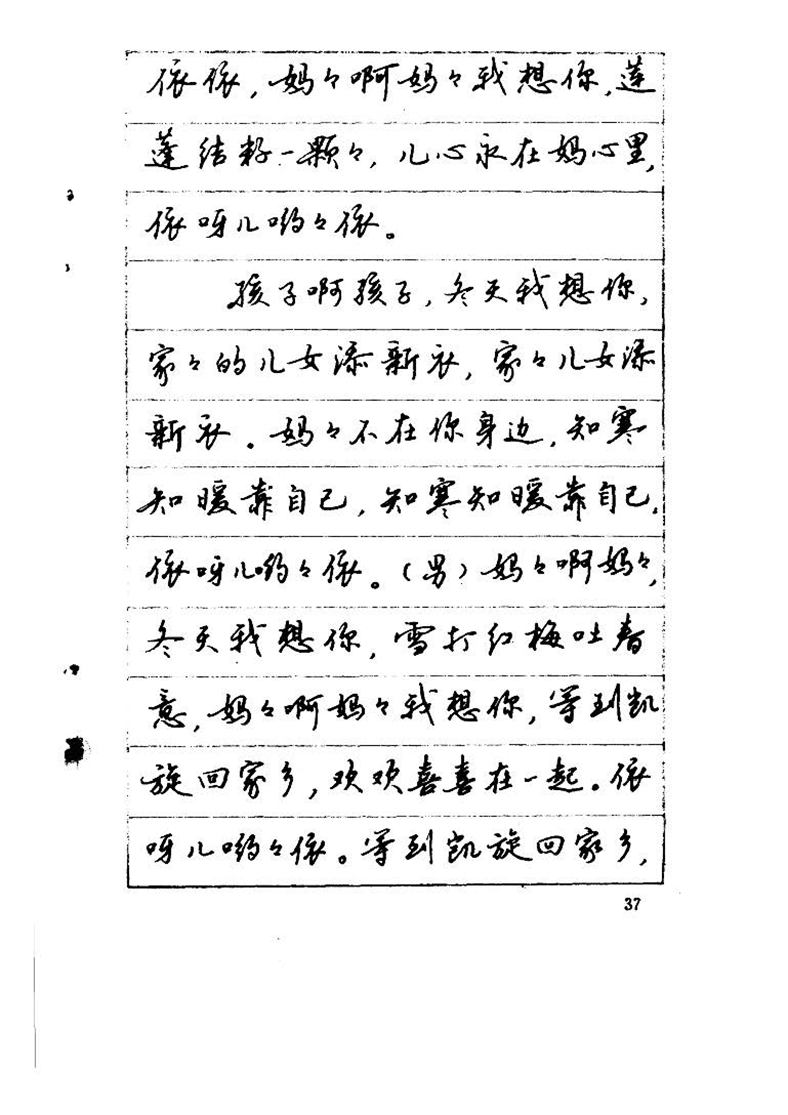 依依，妈々啊妈々我想你，莲
蓬结籽一颗々，儿心永在妈心里，
依呀儿哟々依。
孩子啊孩子，冬天我想你，
家々的儿女添新衣，家々儿女添
新衣。妈々不在你身边，知寒
知暖靠自己，知寒知暖靠自己，
依呀儿哟々依。(男)妈々啊妈々，
冬天我想你，雪打红梅吐春
意，妈々啊妈々我想你，等到凯
旋回家乡，欢欢喜喜在一起。依
呀儿哟々依。等到凯旋回家乡，
37